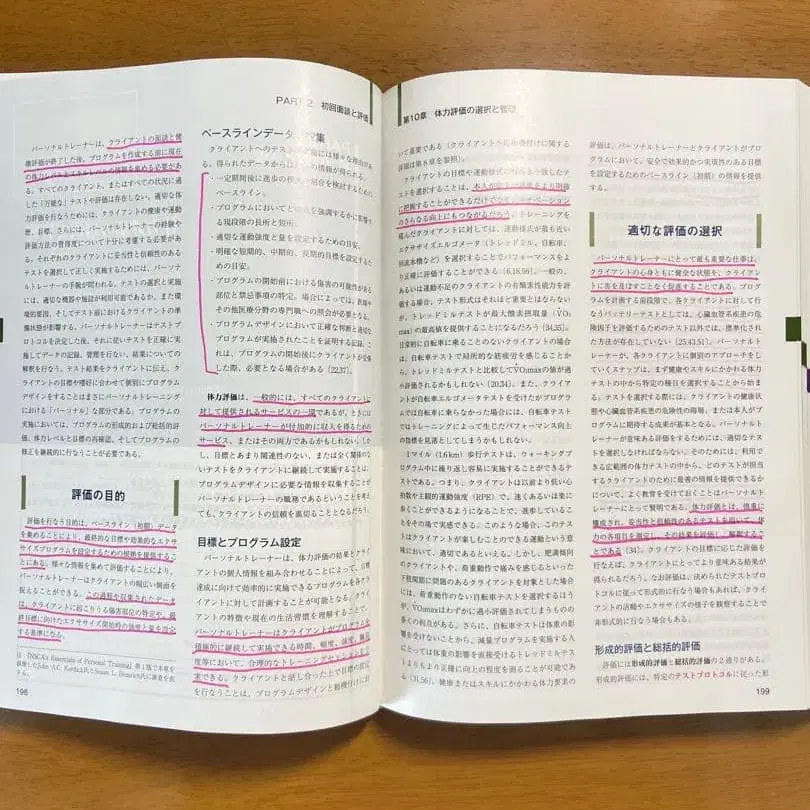 PART 2 初回面談と評価
パーソナルトレーナーは、クライアントの面談と健
康評価が終了した後、プログラムを作成する前に現在
の体力レベルとスキルレベルの情報を集める必要があ
る。すべてのクライアント、またはすべての状況に適
した「万能な」テストや評価は存在しない。適切な体
力評価を行なうためには、クライアントの健康や運動
歴、目標、さらには、パーソナルトレーナーの経験や
評価方法の習得度について十分に考慮する必要があ
る。それぞれのクライアントに妥当性と信頼性のある
テストを選択して正しく実施するためには、パーソナル
トレーナーの手腕が問われる。テストの選択と実施
には、適切な機器や施設が利用可能であるか、また環
境的要因、そしてテスト前におけるクライアントの準
備状態が影響する。パーソナルトレーナーはテストプ
ロトコルを決定した後、それに従いテストを正確に実
施してデータの記録、管理を行ない、結果についての
解釈を行なう。テスト結果をクライアントに伝え、ク
ライアントの目標や嗜好に合わせて個別にプログラム
デザインをすることはまさにパーソナルトレーニング
における「パーソナル」な部分である。プログラムの
実施においては、プログラムの形成的および総括的評
価、体力レベルと目標の再確認、そしてプログラムの
修正を継続的に行なうことが必要である。
評価の目的
評価を行なう目的は、ベースライン（初期）データ
を集めることにより、最終的な目標や効果的なエクサ
サイズプログラムを設定するための根拠を提供するこ
とにある。様々な情報を集めて評価することにより、
パーソナルトレーナーはクライアントの幅広い側面を
捉えることができる。この過程や収集されたデータ
は、クライアントに起こりうる傷害部位の特定や、最
終目標に向けたエクササイズ開始時の強度と量を設定
する基準になる。
198
ベースラインデータ 収集
クライアントへのテスト
一定期間後に進歩の程
ベースライン。
・プログラムにおいて
る現段階の長所と短所。
・適切な運動強度と量を設定するための目安。
・明確な短期的、中期的、長期的目標を設定するた
めの目安。
・プログラムの開始前における傷害の可能性がある
部位と禁忌事項の特定。場合によっては、医師や
その他医療分野の専門職への照会が必要となる。
・プログラムデザインにおいて正確な判断と適切な
プログラムが実施されたことを証明する記録。こ
れは、プログラムの開始後にクライアントが受傷
した際、必要となる場合がある（22,37）。
体力評価は、一般的には、すべてのクライアントに
対して提供されるサービスの一環であるが、ときには
パーソナルトレーナーが付加的に収入を得るための
サービス、またはその両方であるかもしれない。しか
し、目標とあまり関連性のない、または全く関係のな
いテストをクライアントに継続して実施することは、
プログラムデザインに必要な情報を収集することが
パーソナルトレーナーの職務であるということを考え
ても、クライアントの信頼を裏切ることになるだろう。
目標とプログラム設定
パーソナルトレーナーは、体力評価の結果とクライ
アントの個人情報を組み合わせることによって、目標
達成に向けて効率的に実施できるプログラムを各クラ
イアントに対して計画することが可能となる。クライ
アントの特徴や現在の生活習慣を理解することで、パ
ーソナルトレーナーはクライアントがプログラムを
積極的に継続して実施できる時間、頻度、強度、
度等において、合理的なトレーニングセッションを
案できる。クライアントと話し合った上で目標の設定
を行なうことは、プログラムデザインと動機付けにお
第10章 体力評価の選択と管理
いて重要である（クライアントへの動機付けに関する
詳細は第8章を参照）。
クライアントの目標や運動様式の特異性と一致したテ
ストを選択することは、本人が進歩の程度をより明確
に把握することができるだけでなく、モチベーション
のさらなる向上にもつながるだろう。トレーニングを
積んだクライアントに対しては、運動様式が最も近い
エクササイズエルゴメータ（トレッドミル、自転車、
回流水槽など）を選択することでパフォーマンスをよ
り正確に評価することができる（6,18,56）。一般の、
あるいは運動不足のクライアントの有酸素性能力を評
価する場合、テスト形式はそれほど重要とはならない
が、トレッドミルテストが最大酸素摂取量（V̇O₂
max）の最高値を提供することになるだろう（34,35）。
日常的に自転車に乗ることのないクライアントの場合
は、自転車テストで局所的な筋疲労を感じることか
ら、トレッドミルテストと比較してV̇O₂maxの値が過
小評価されるかもしれない（20,34）。また、クライア
ントが自転車エルゴメータテストを受けたがプログラ
ムでは自転車に乗らなかった場合には、自転車テスト
ではトレーニングによって生じたパフォーマンス向上
の指標を見落としてしまうかもしれない。
1マイル（1.6km）歩行テストは、ウォーキングプ
ログラム中に繰り返し容易に実施することができるテ
ストである。つまり、クライアントは以前より低い心
拍数や主観的運動強度（RPE）で、速くあるいは楽に
歩くことができるようになることで、進歩しているこ
とをその場で実感できる。このような場合、このテス
トはクライアントが楽しむことのできる運動という意
味において、適切であるといえる。しかし、肥満傾向
のクライアントや、荷重動作で痛みを感じるといった
下肢関節に問題のあるクライアントを対象とした場合
には、荷重動作のない自転車テストを選択するほう
が、V̇O₂maxはわずかに過小評価されてしまうものの
多くの利点がある。さらに、自転車テストは体重の影
響を受けないことから、減量プログラムを実施する人
にとっては体重の影響を直接受けるトレッドミルテス
トよりもより正確に向上の程度を測ることが可能であ
る（31,56）。健康またはスキルにかかわる体力要素の
評価は、パーソナルトレーナーとクライアントがプロ
グラムにおいて、安全で効果的かつ実現性のある目標
を設定するためのベースライン（初期）の情報を提供
する。
適切な評価の選択
パーソナルトレーナーにとって最も重要な仕事は、
クライアントの心身ともに健全な状態を、クライアン
トに害を及ぼすことなく促進することである。プログ
ラムを計画する前段階で、各クライアントに対して行
なうバッテリーテストとしては、心臓血管系疾患の危
険因子を評価するためのテスト以外では、標準化され
た方法が存在していない（25,43,51）。パーソナルト
レーナーが、各クライアントに個別のアプローチをし
ていくステップは、まず健康やスキルにかかわる体力
テストの中から特定の種目を選択することから始ま
る。テストを選択する際には、クライアントの健康状
態や心臓血管系疾患の危険性の層別、または本人がプ
ログラムに期待する成果が基本となる。パーソナルト
レーナーが意味ある評価をするためには、適切なテス
トを選択しなければならない。そのためには、利用で
きる広範囲の体力テストの中から、どのテストが担当
するクライアントのために最善の情報を提供できるか
について、よく教育を受けておくことはパーソナルト
レーナーにとって賢明である。体力評価とは、慎重に
構成され、妥当性と信頼性のあるテストを用いて、体力
の各項目を測定し、その結果を評価し、解釈すること
である（34）。クライアントの目標に応じた評価を
行なえば、クライアントにとってより意味ある結果が
得られるだろう。なお評価は、決められたテストプロ
トコルに従って形式的に行なう場合もあれば、クライ
アントの活動やエクササイズの様子を観察することで
非形式的に行なう場合もある。
形成的評価と総括的評価
評価には形成的評価と総括的評価の2通りがある。
形成的評価には、特定のテストプロトコルに従った形
199